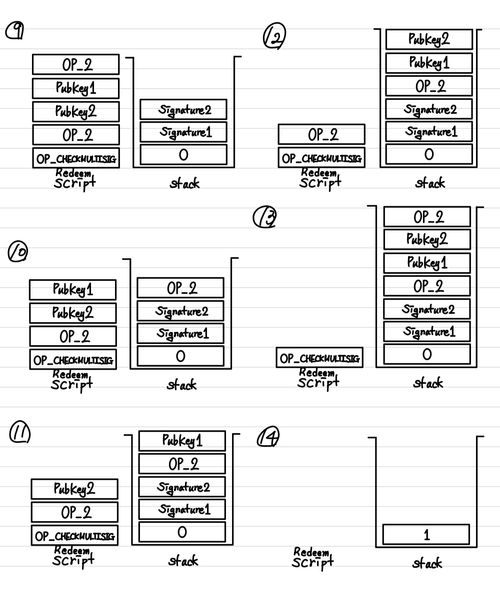 9
OP_2
Pubkey1
Pubkey2
OP_2
OP_CHECKMULTISIG
Redeem
Script
Signature2
Signature1
0
stack
10
Pubkey1
Pubkey2
OP_2
OP_CHECKMULTISIG
Redeem
Script
OP_2
Signature2
Signature1
0
stack
11
Pubkey2
OP_2
OP_CHECKMULTISIG
Redeem
Script
Pubkey1
OP_2
Signature2
Signature1
0
stack
12
OP_2
OP_CHECKMULTISIG
Redeem
Script
Pubkey2
Pubkey1
OP_2
Signature2
Signature1
0
stack
13
OP_CHECKMULTISIG
Redeem
Script
OP_2
Pubkey2
Pubkey1
OP_2
Signature2
Signature1
0
stack
14
Redeem
Script
1
stack